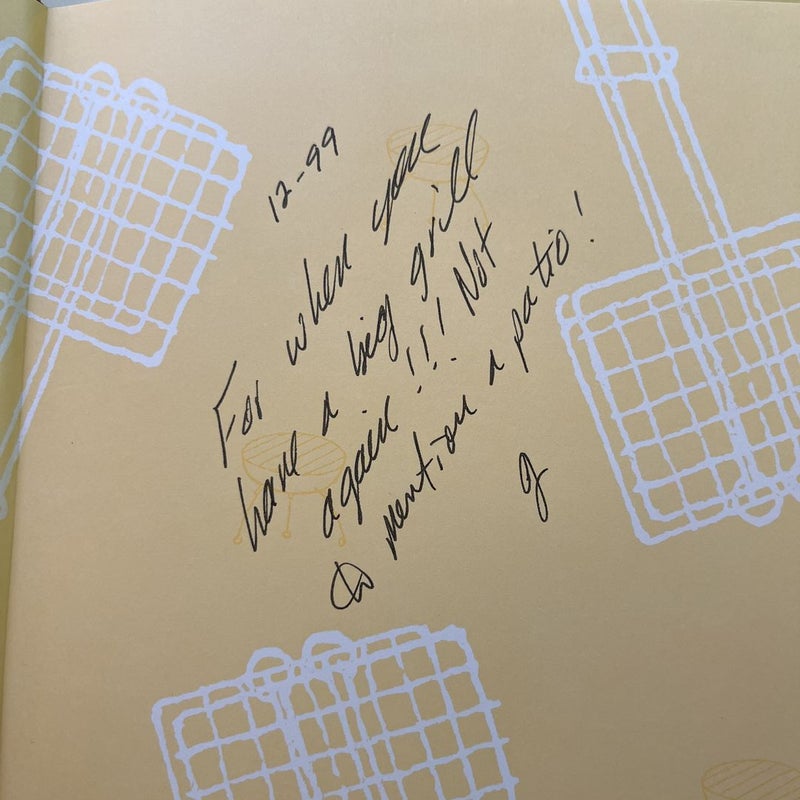 12-99
For when you
have a big grill
again!!! Not
to mention a patio!
g